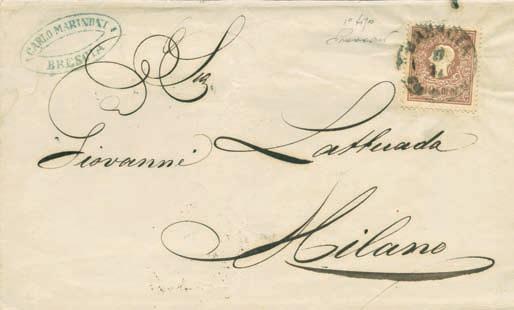 CARLO MARINONI
BRESCIA
1° tipo
A Sig
Giovanni Lattuada
Milano